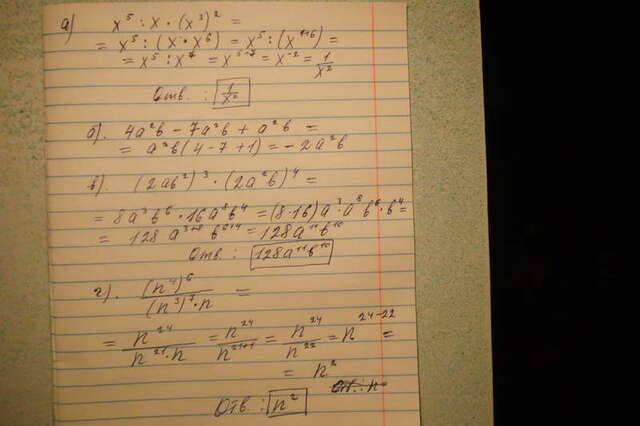 а) x⁵ : x · (x³)² =
= x⁵ : (x · x⁶) = x⁵ : (x¹⁺⁶) =
= x⁵ : x⁷ = x⁵⁻⁷ = x⁻² = 1/x²
Отв. : 1/x²
б). 4a²b - 7a²b + a²b =
= a²b(4-7+1) = -2a²b
в). (2ab²)³ · (2a²b)⁴ =
= 8a³b⁶ · 16a⁸b⁴ = (8·16)a³·a⁸ b⁶·b⁴ =
= 128 a³⁺⁸ b⁶⁺⁴ = 128a¹¹b¹⁰
Отв. : 128a¹¹b¹⁰
г). (n⁴)⁶ / (n³)⁷·n =
= n²⁴ / n²¹·n = n²⁴ / n²¹⁺¹ = n²⁴ / n²² = n²⁴⁻²² =
= n²
Отв. : n
Отв. : n²